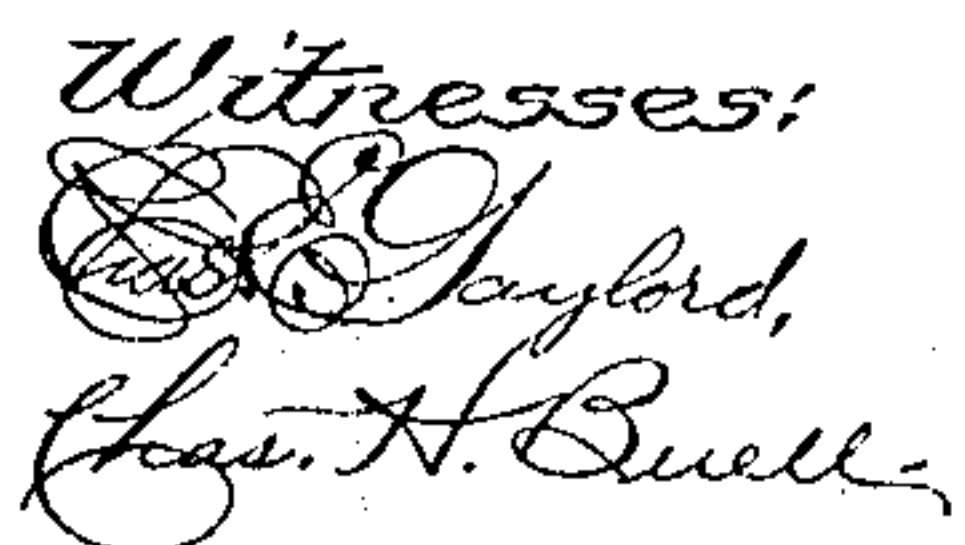 Witnesses:
E Gaylord,
Chas. H. Buell